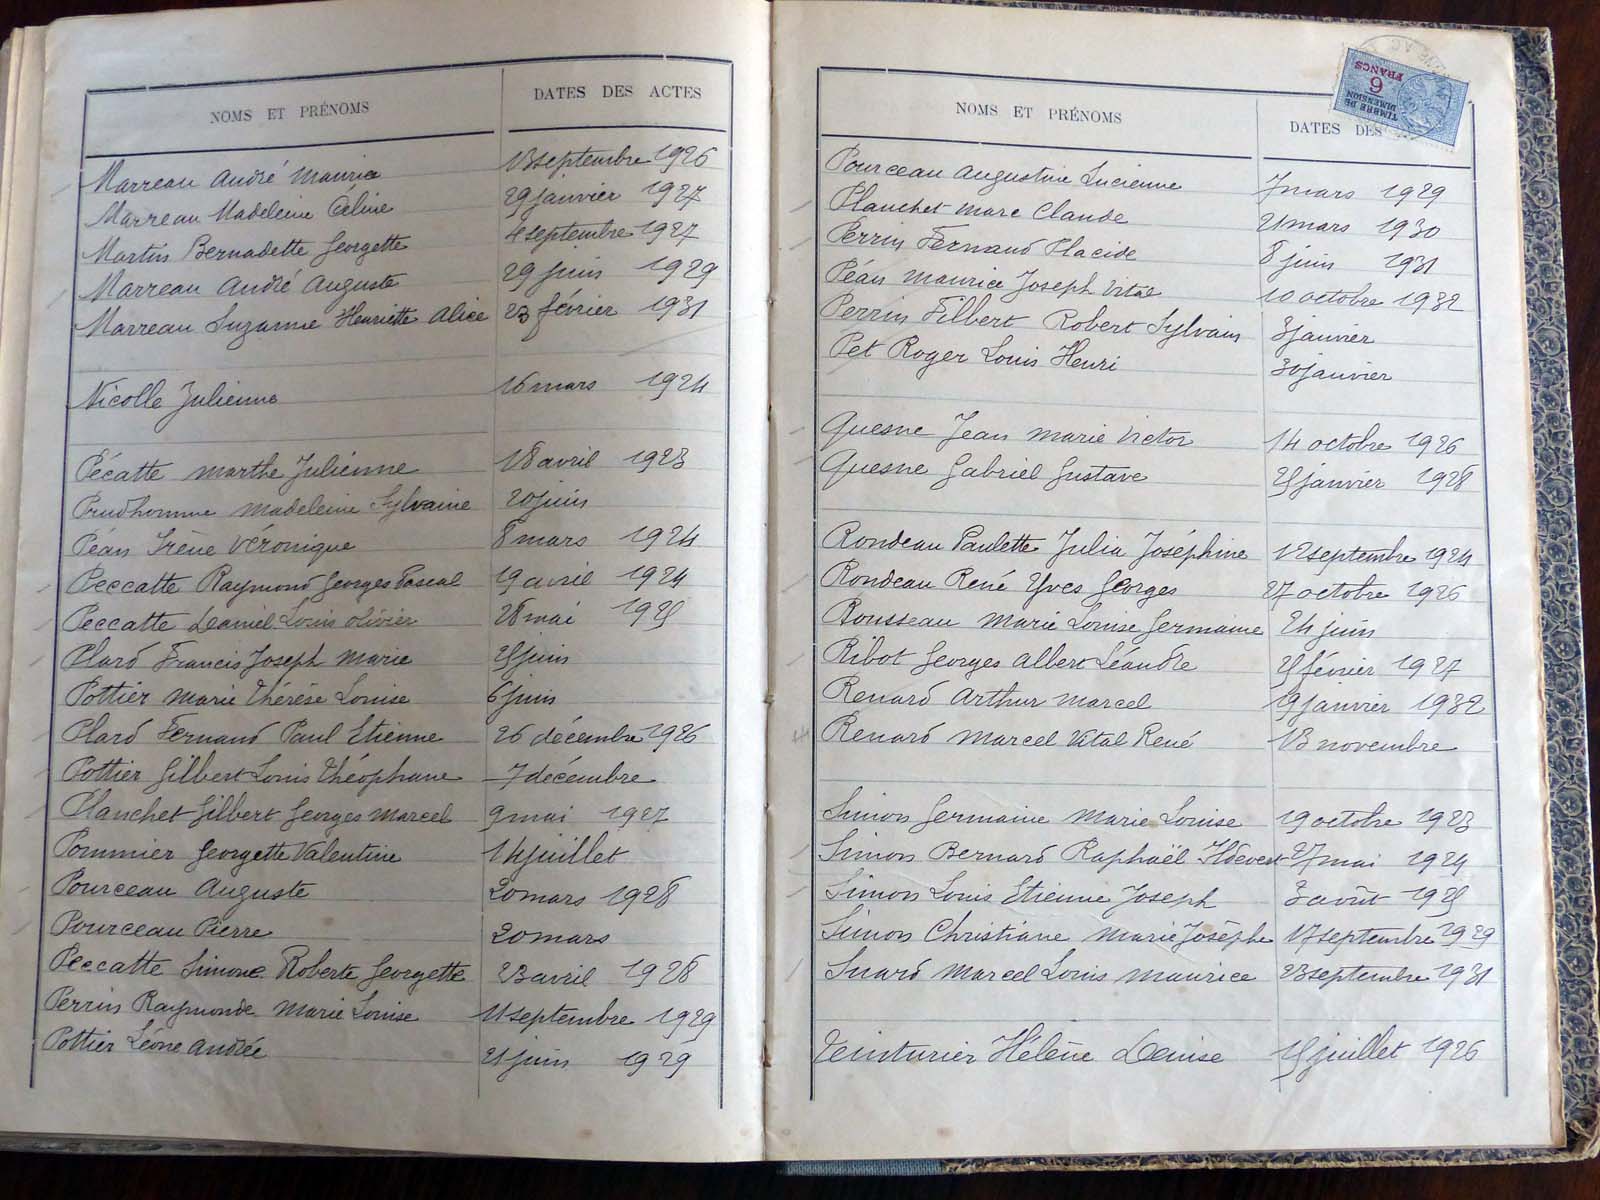 NOMS ET PRÉNOMS DATES DES ACTES
Marreau André Maurice 13 septembre 1926
Marreau Madeleine Céline 29 janvier 1927
Martin Bernadette Georgette 4 septembre 1927
Marreau André Auguste 29 juin 1929
Marreau Suzanne Henriette Alice 23 février 1931
Nicolle Julienne 16 mars 1924
Pécatte Marthe Julienne 18 avril 1923
Prudhomme Madeleine Sylvaine 20 juin
Péan Irène Véronique 8 mars 1924
Peccatte Raymond Georges Pascal 19 avril 1924
Peccatte Daniel Louis Olivier 28 mai 1925
Plard Francis Joseph Marie 25 juin
Pottier Marie Thérèse Louise 6 juin
Plard Fernand Paul Etienne 26 décembre 1926
Pottier Gilbert Louis Théophane 7 décembre
Planchet Gilbert Georges Marcel 9 mai 1927
Pommier Georgette Valentine 14 juillet
Pourceau Auguste 20 mars 1928
Pourceau Pierre 20 mars
Peccatte Simone Roberte Georgette 23 avril 1928
Perrin Raymonde Marie Louise 11 septembre 1929
Pottier Léone Andrée 21 juin 1929
TIMBRE DE DIMENSION
6 FRANCS
NOMS ET PRÉNOMS DATES DES
Pourceau Augustine Lucienne 7 mars 1929
Planchet Marc Claude 21 mars 1930
Perrin Fernand Placide 8 juin 1931
Péan Maurice Joseph Vital 10 octobre 1932
Perrin Filbert Robert Sylvain 3 janvier
Pet Roger Louis Henri 30 janvier
Quesne Jean Marie Victor 14 octobre 1926
Quesne Gabriel Gustave 25 janvier 1928
Rondeau Paulette Julia Joséphine 12 septembre 1924
Rondeau René Yves Georges 27 octobre 1926
Rousseau Marie Louise Germaine 24 juin
Ribot Georges Albert Léandre 25 février 1927
Renard Arthur Marcel 19 janvier 1932
Renard Marcel Vital René 13 novembre
Simon Germaine Marie Louise 19 octobre 1923
Simon Bernard Raphaël Hdevert 27 mai 1924
Simon Louis Etienne Joseph 3 août 1925
Simon Christiane Marie Josèphe 17 septembre 1929
Suard Marcel Louis Maurice 23 septembre 1931
Teinturier Hélène Denise 15 juillet 1926